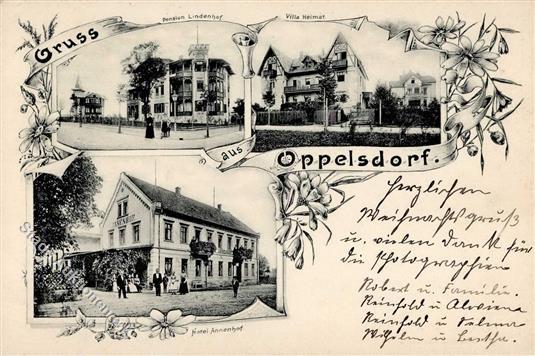 Gruss
Pension Lindenhof.
Villa Heimat.
aus
Oppelsdorf.
Hotel Annenhof.
Herzlichen
Weihnachtsgruß
u. vielen Dank für
die Photographien
Robert u. Familie.
Reinhold u. Alwine
Reinhold u. Selma
Wilhelm u. Bertha.